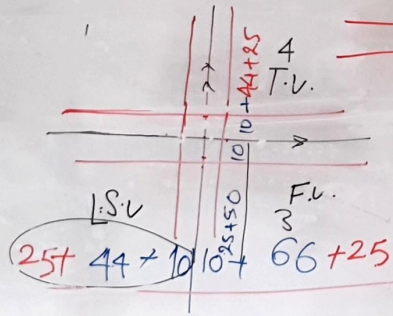 4
T.V.
10 + 44+25
10
L.S.V
F.V.
3
25+50
25+ 44 + 10 10 + 66 +25